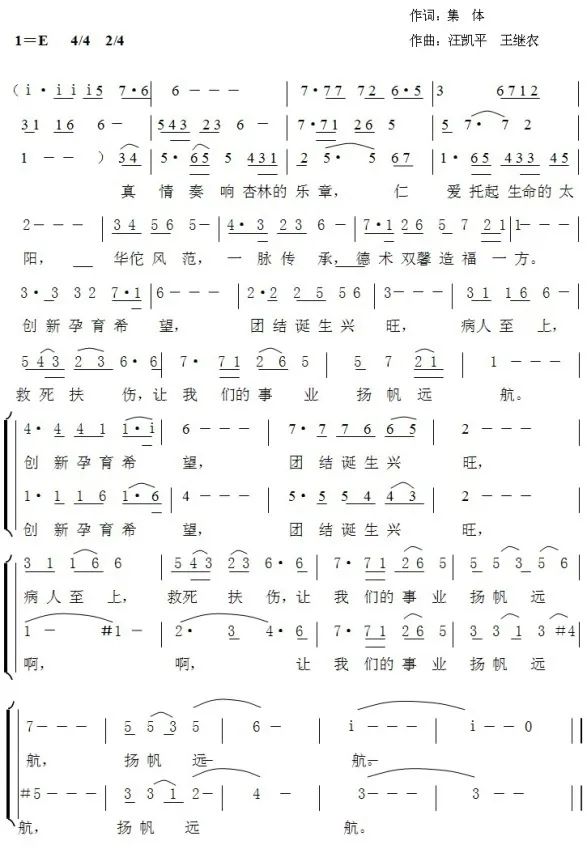 作词：集 体
1＝E 4/4 2/4 作曲：汪凯平 王继农
（i· i i i5 7·6 | 6 - - - | 7·77 72 6·5 | 3 6712 |
31 16 6 - | 543 23 6 - | 7·71 26 5 | 5 7· 7 2 |
1 - - ）34 | 5· 65 5 431 | 2 5· 5 67 | 1· 65 433 45 |
真 情 奏 响 杏林的 乐 章， 仁 爱 托起 生命的 太
2 - - - | 34 56 5 - | 4·3 23 6 - | 7·1 26 5 7 21 | 1 - - - |
阳， 华佗 风 范， 一 脉 传 承， 德 术 双馨 造 福 一 方。
3· 3 32 7·1 | 6 - - - | 2·2 2 5 56 | 3 - - - | 31 16 6 - |
创 新 孕 育 希 望， 团 结 诞 生 兴 旺， 病人 至 上，
543 23 6·6 | 7· 71 26 5 | 5 7 21 | 1 - - - |
救死 扶 伤，让 我 们的 事 业 扬 帆 远 航。
4· 4 41 1·i | 6 - - - | 7·7 76 65 | 2 - - - |
创 新 孕 育 希 望， 团 结 诞 生 兴 旺，
1·1 16 1·6 | 4 - - - | 5·5 54 43 | 2 - - - |
创 新 孕 育 希 望， 团 结 诞 生 兴 旺，
31 16 6 | 543 23 6·6 | 7·71 26 5 | 5 53 56 |
病 人 至 上， 救死 扶 伤，让 我 们的 事 业 扬 帆 远
1 - #1 - | 2· 3 4·6 | 7·71 26 5 | 3 31 3 #4 |
啊， 啊， 让 我 们的 事 业 扬 帆 远
7 - - - | 5 53 5 6 - | i - - - | i - - 0 ||
航， 扬 帆 远 航。
#5 - - - | 3 31 2 - 4 - | 3 - - - 3 - - ||
航， 扬 帆 远 航。